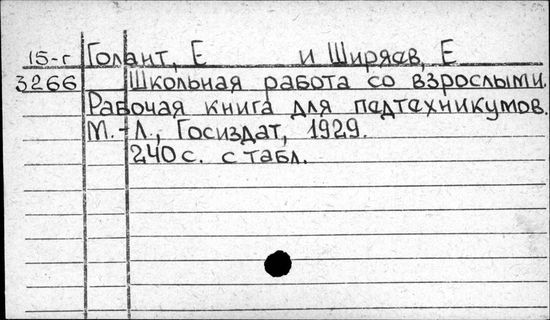 15-г Голант, Е и Ширяев, Е
3266 Школьная работа со взрослыми.
Рабочая книга для педтехникумов.
М.-Л., Госиздат, 1929.
240 с. с табл.